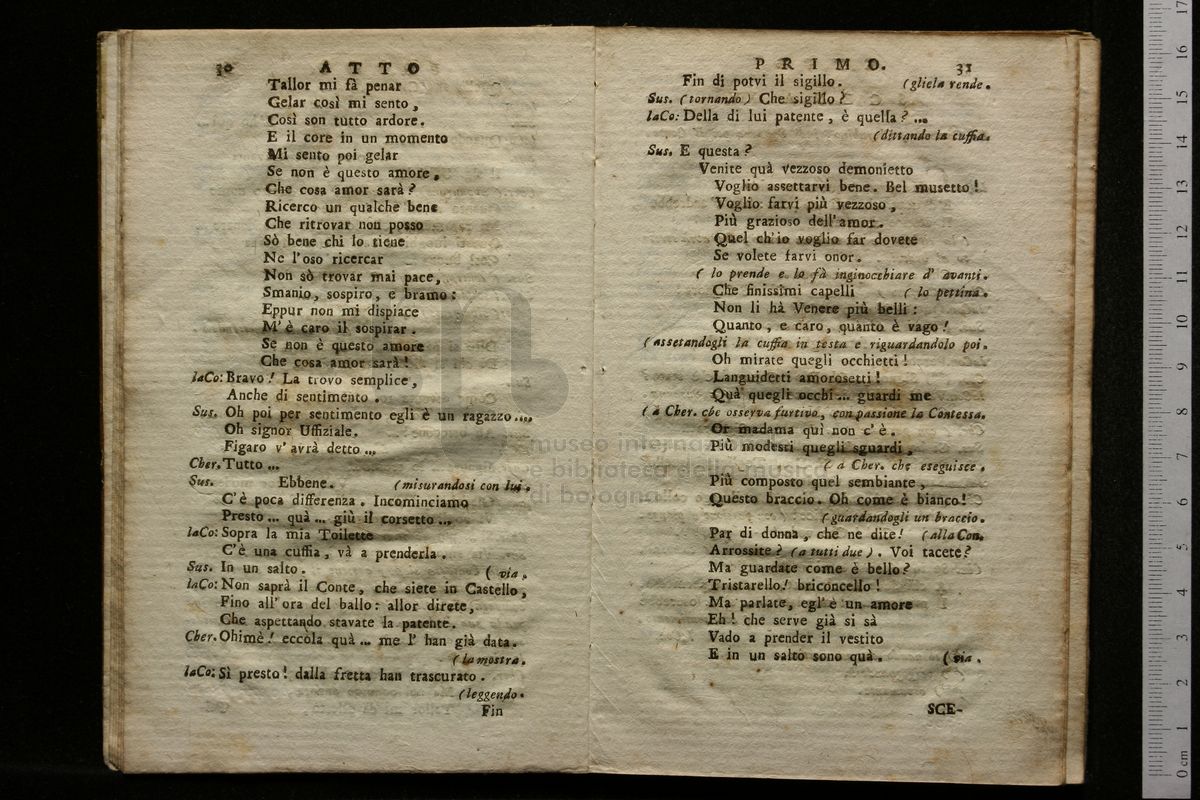 30 ATTO
Tallor mi fà penar
Gelar così mi sento,
Così son tutto ardore.
E il core in un momento
Mi sento poi gelar
Se non è questo amore,
Che cosa amor sarà?
Ricerco un qualche bene
Che ritrovar non posso
Sò bene chi lo tiene
Ne l'oso ricercar
Non sò trovar mai pace,
Smanio, sospiro, e bramo:
Eppur non mi dispiace
M'è caro il sospirar.
Se non è questo amore
Che cosa amor sarà!
laCo: Bravo! La trovo semplice,
Anche di sentimento.
Sus. Oh poi per sentimento egli è un ragazzo....
Oh signor Uffiziale.
Figaro v'avrà detto...
Cher. Tutto...
Sus. Ebbene. (misurandosi con lui.
C'è poca differenza. Incominciamo
Presto... quà... giù il corsetto...
laCo: Sopra la mia Toilette
C'è una cuffia, và a prenderla.
Sus. In un salto. (via.
laCo: Non saprà il Conte, che siete in Castello,
Fino all'ora del ballo: allor direte,
Che aspettando stavate la patente.
Cher. Ohimè! eccola quà... me l'han già data.
(la mostra.
laCo: Sì presto! dalla fretta han trascurato.
(leggendo.
Fin
PRIMO. 31
Fin di potvi il sigillo. (gliela rende.
Sus. (tornando) Che sigillo?
laCo: Della di lui patente, è quella?...
(dittando la cuffia.
Sus. E questa?
Venite quà vezzoso demonietto
Voglio assettarvi bene. Bel musetto!
Voglio farvi più vezzoso,
Più grazioso dell'amor.
Quel ch'io voglio far dovete
Se volete farvi onor.
(lo prende e lo fà inginocchiare d'avanti.
Che finissimi capelli (lo pettina.
Non li hà Venere più belli:
Quanto, e caro, quanto è vago!
(assetandogli la cuffia in testa e riguardandolo poi.
Oh mirate quegli occhietti!
Languidetti amorosetti!
Quà quegli occhi... guardi me
(a Cher. che osserva furtivo, con passione la Contessa.
Or madama quì non c'è.
Più modesti quegli sguardi,
(a Cher. che eseguisce.
Più composto quel sembiante,
Questo braccio. Oh come è bianco!
(guardandogli un braccio.
Par di donna, che ne dite! (alla Con.
Arrossite? (a tutti due). Voi tacete?
Ma guardate come è bello?
Tristarello! briconcello!
Ma parlate, egl'è un amore
Eh! che serve già si sà
Vado a prender il vestito
E in un salto sono quà. (via.
SCE-
museo internazionale
e biblioteca della musica
di bologna